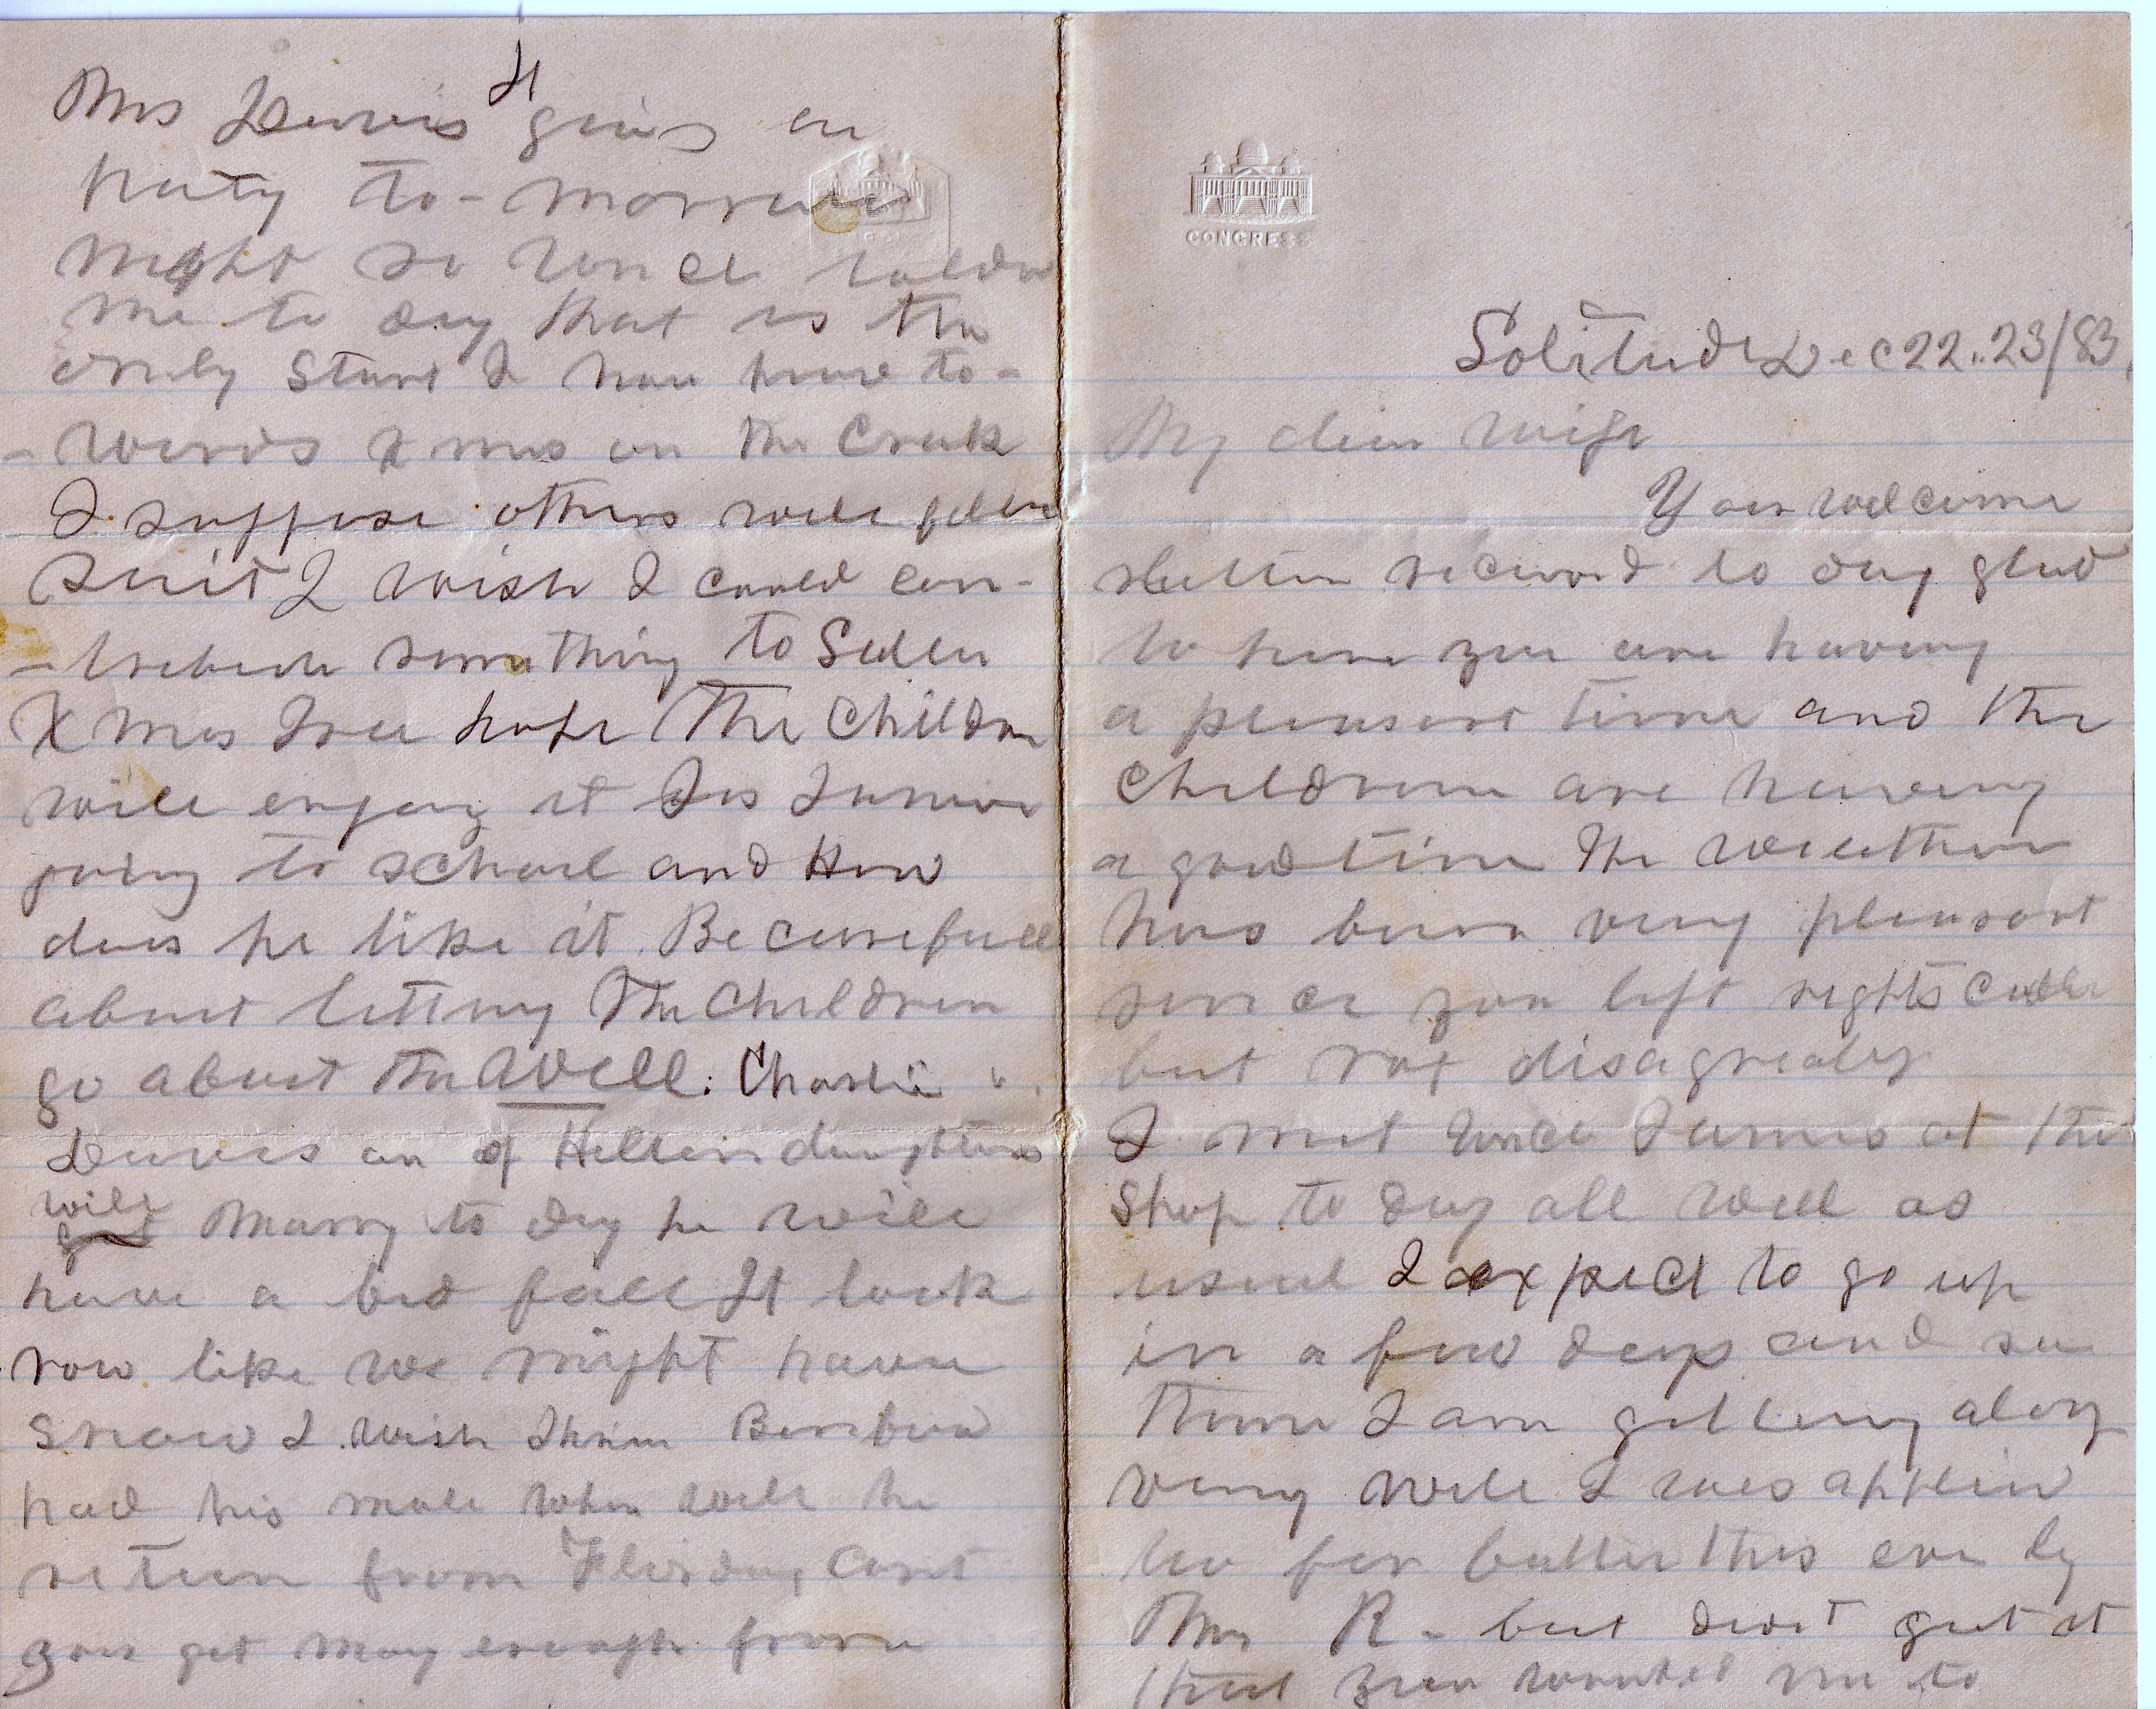 CONGRESS
Solitude Dec 22..23/83
My dear wife
Your welcome
letter recived to day glad
to hear you are having
a pleasant time and the
Childrenn are having
a good time The weather
has been very pleasant
since you left right cold
but not disagreably
I met Uncle James at the
Shop to day all well as
usual I expect to go up
in a few days and see
them I am getting along
very well I was applied
to for butter this eve by
Mrs R - but didnt get it
that you wanted me to
Mrs Lewis H gives a
party to-morrow
night so Uncle told
me to day that is the
only start I have heard to-
-wards Xmas on the Creek
I suppose others will follow
suit I wish I could con-
-tribute something to
Xmas Tree hope The Children
will enjoy it Is Junior
going to school and How
does he like it. Be carefull
about letting The Children
go about the Well. Charlie
of daughters
will Marry to day he will
have a bad fall It look
now like we might have
snow I wish
had his mule when will he
return from Florida, cant
you get may enough from